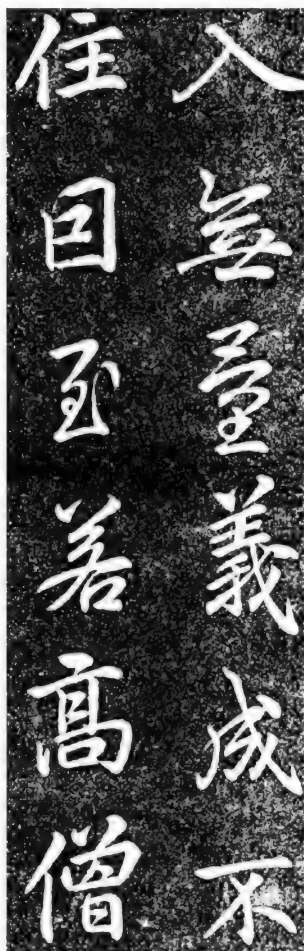 入無量義成不
住因至若高僧